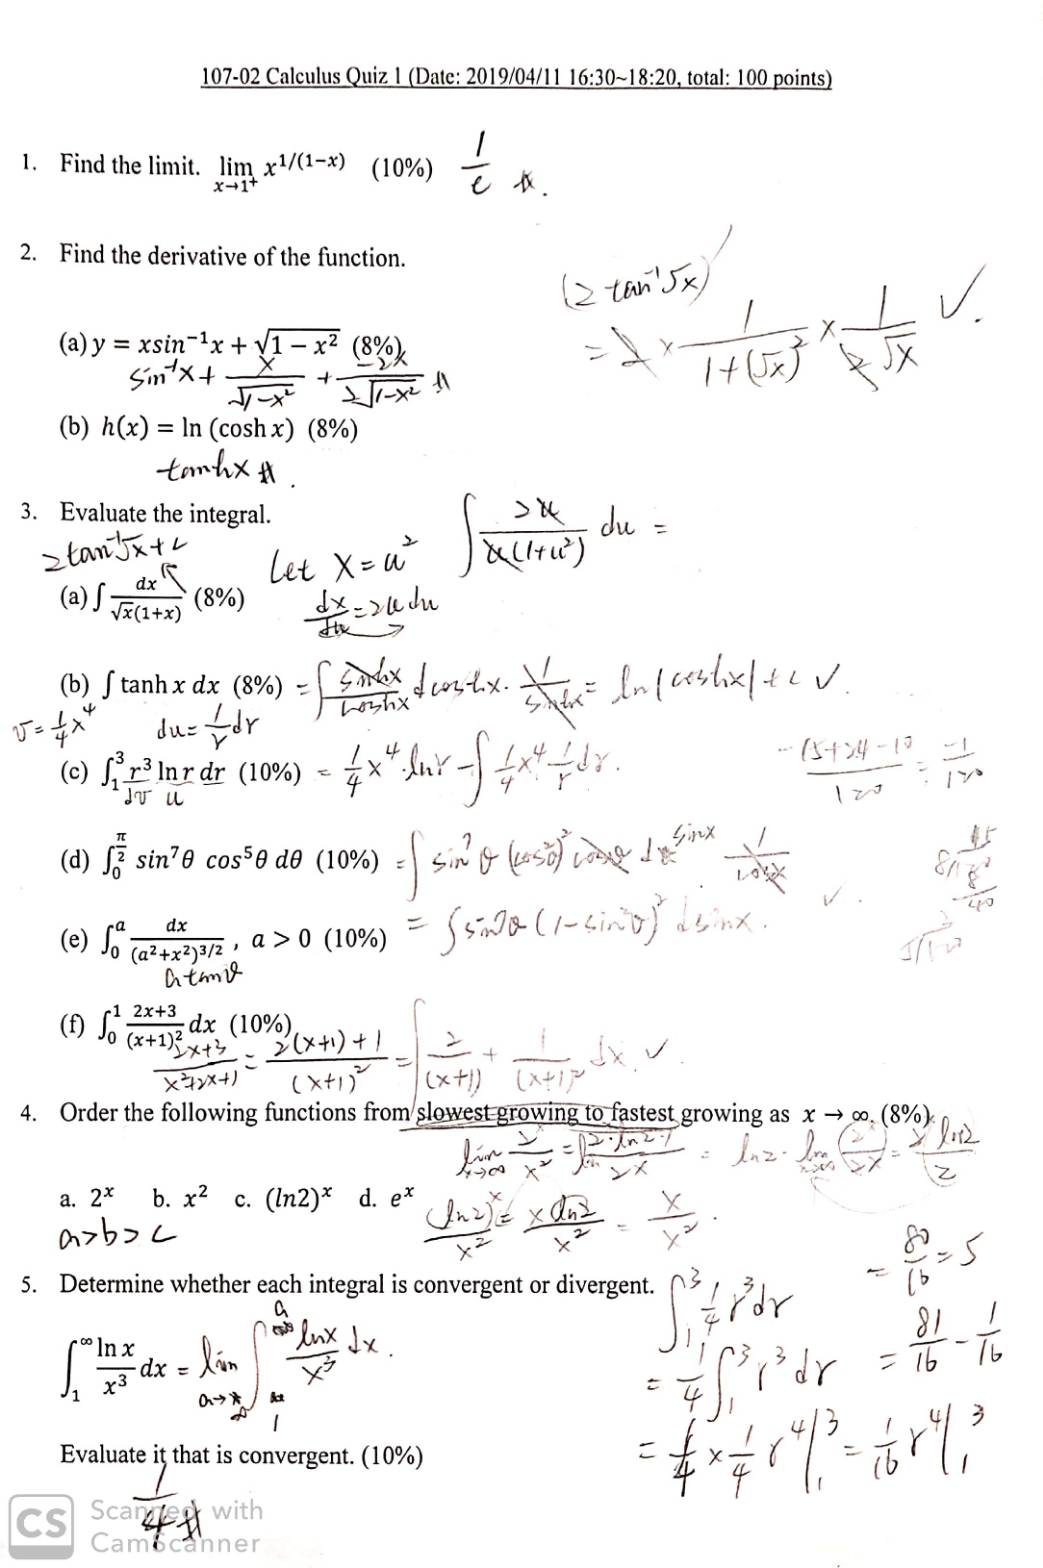 107-02 Calculus Quiz 1 (Date: 2019/04/11 16:30~18:20, total: 100 points)
1. Find the limit. lim x→1⁺ x^{1/(1−x)} (10%) 1/e #.
2. Find the derivative of the function.
(2 tan⁻¹√x)'
= 2 × 1/(1+(√x)²) × 1/(2√x) ✓.
(a) y = xsin⁻¹x + √(1 − x²) (8%)
sin⁻¹x + x/√(1−x²) + −2x/(2√(1−x²)) #
(b) h(x) = ln (cosh x) (8%)
tanhx #.
3. Evaluate the integral.
2tan⁻¹√x+c
Let x = u² ∫ 2u/(u(1+u²)) du =
(a) ∫ dx/(√x(1+x)) (8%)
dx/du = 2u du
(b) ∫ tanh x dx (8%) = ∫ sinhx/coshx dcoshx · 1/sinhx = ln|coshx|+c ✓.
v = 1/4 x⁴ du = 1/r dr
(c) ∫₁³ r³ ln r dr (10%) = 1/4 x⁴ · lnr − ∫ 1/4 x⁴ · 1/r dr.
dv u
(d) ∫₀^{π/2} sin⁷θ cos⁵θ dθ (10%) = ∫ sin⁷θ (cos²θ)² cosθ d sinx 1/cosx
= ∫ sin⁷θ (1−sin²θ)² dsinx.
(e) ∫₀ᵃ dx/(a²+x²)^{3/2} , a > 0 (10%)
a tanθ
(f) ∫₀¹ (2x+3)/(x+1)² dx (10%)
(2x+3)/(x²+2x+1) = (2(x+1)+1)/(x+1)² = ∫ 2/(x+1) + 1/(x+1)² dx ✓
4. Order the following functions from slowest growing to fastest growing as x → ∞. (8%)
a. 2ˣ b. x² c. (ln2)ˣ d. eˣ
a>b>c
= 80/16 = 5
5. Determine whether each integral is convergent or divergent.
∫₁³ 1/4 r³dr
∫₁^∞ ln x/x³ dx = lim a→∞ ∫₁ᵃ lnx/x³ dx.
= 1/4 ∫₁³ r³ dr = 81/16 − 1/16
= 1/4 × 1/4 r⁴|₁³ = 1/16 r⁴|₁³
Evaluate it that is convergent. (10%)
1/4 #
CS Scanned with
CamScanner